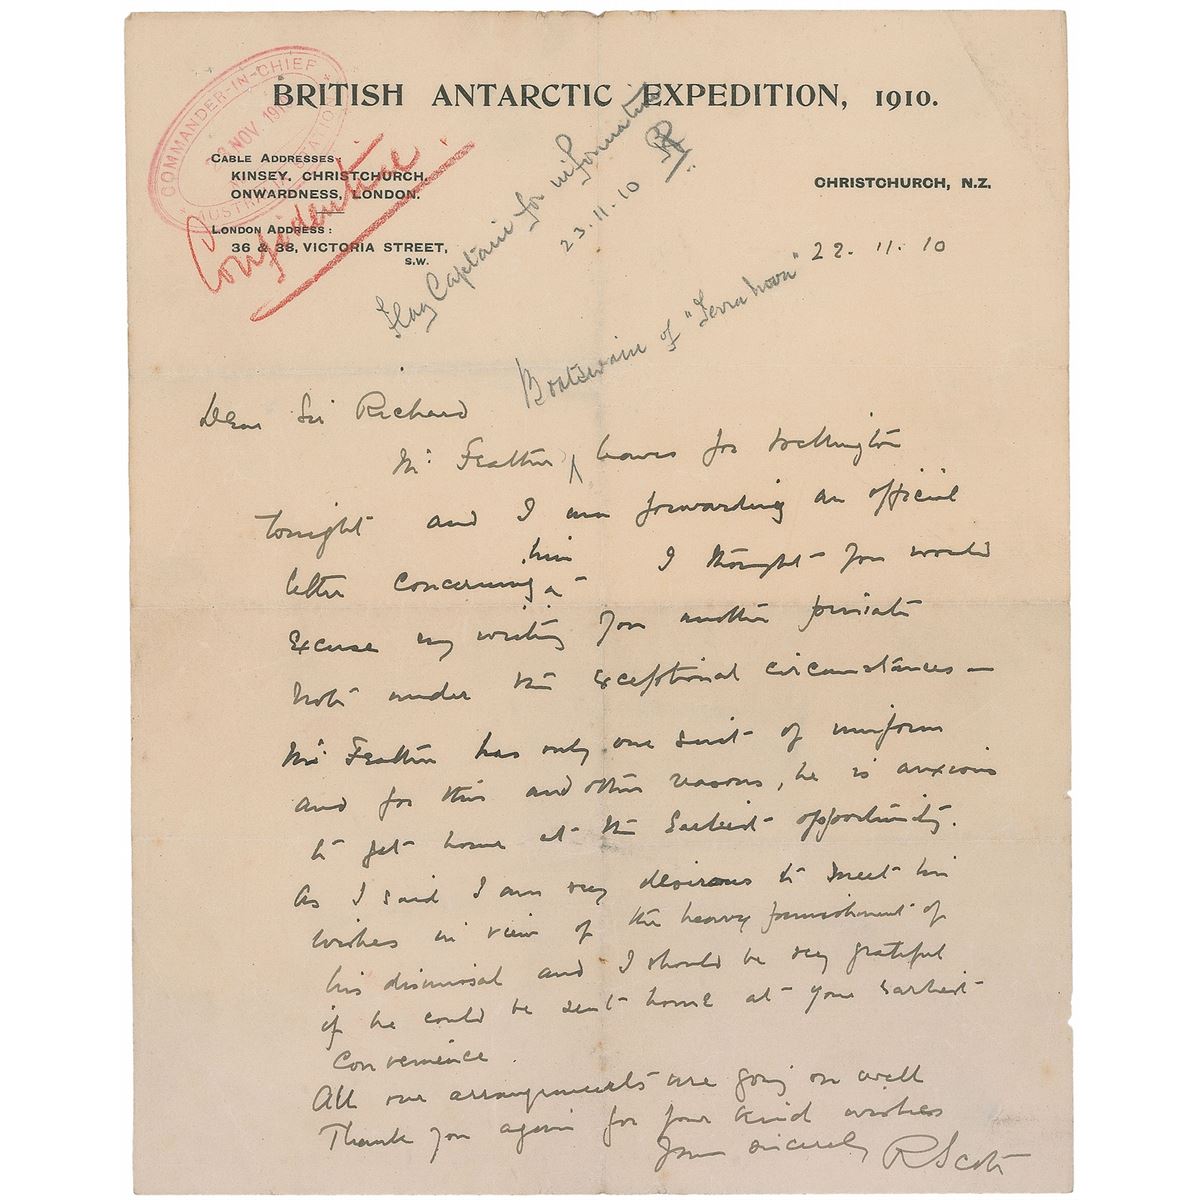 BRITISH ANTARCTIC EXPEDITION, 1910.
COMMANDER-IN-CHIEF
NOV. 191
AUSTRALIA STATION
Confidential
CABLE ADDRESSES:
KINSEY, CHRISTCHURCH,
ONWARDNESS, LONDON.
LONDON ADDRESS:
36 & 38, VICTORIA STREET,
S.W.
CHRISTCHURCH, N.Z.
Flag Captain for information
23.11.10
22.11.10
Boatswain of "Terra Nova"
Dear Sir Richard
Mr Feather leaves for Wellington
tonight and I am forwarding an official
letter concerning him I thought you would
excuse my writing you another private
note under the exceptional circumstances —
Mr Feather has only one suit of uniform
and for this and other reasons, he is anxious
to get home at the earliest opportunity.
As I said I am very desirous to meet his
wishes in view of the heavy punishment of
his dismissal and I should be very grateful
if he could be sent home at your earliest
convenience.
All our arrangements are going on well
Thank you again for your kind wishes
Yours sincerely RScott